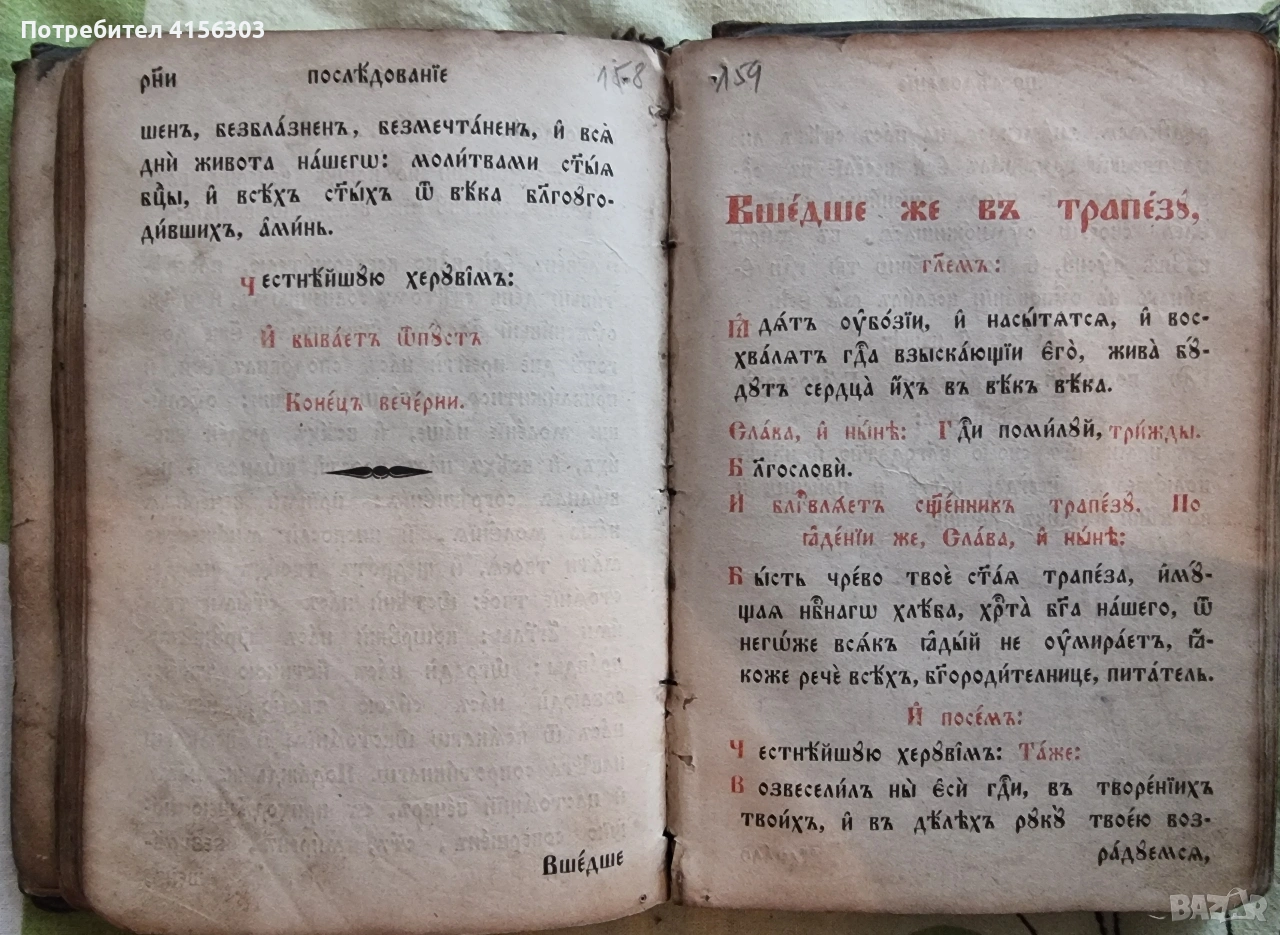 Потребител 4156303
рн҃и послѣ́дованїе 158
шенъ, безбла́зненъ, безмечта́ненъ, и҆ всѧ̀
днѝ живота̀ на́шегѡ: моли́твами ст҃ы́ѧ
бц҃ы, и҆ всѣ́хъ ст҃ы́хъ ѿ вѣ́ка бл҃гоꙋго-
ди́вшихъ, а҆ми́нь.
Честнѣ́йшꙋю херꙋві̑мъ:
И҆ быва́етъ ѿпꙋ́стъ
Коне́цъ вече́рни.
Вше́дше
159
Вше́дше же въ трапе́зꙋ,
гл҃емъ:
Ꙗ҆дѧ́тъ ᲂу҆бо́зїи, и҆ насы́тѧтсѧ, и҆ вос-
хва́лѧтъ гдⷭ҇а взыска́ющїи є҆го̀, жива̀ бꙋ́-
дꙋтъ сердца̀ и҆́хъ въ вѣ́къ вѣ́ка.
Сла́ва, и҆ ны́нѣ: Гдⷭ҇и поми́лꙋй, три́жды.
Бл҃гословѝ.
И҆ блгⷭ҇влѧ́етъ сщ҃е́нникъ трапе́зꙋ. По
ꙗ҆де́нїи же, Сла́ва, и҆ ны́нѣ:
Бы́сть чре́во твоѐ ст҃а́ѧ трапе́за, и҆мꙋ́-
щаѧ нбⷭ҇наго хлѣ́ба, хрⷭ҇та̀ бг҃а на́шего, ѿ
негѡ́же всѧ́къ ꙗ҆ды́й не ᲂу҆мира́етъ, ꙗ҆́-
коже речѐ всѣ́хъ, бг҃ороди́телнице, пита́тель.
И҆ посе́мъ:
Честнѣ́йшꙋю херꙋві̑мъ: Та́же:
Возвесели́лъ ны̀ є҆сѝ гдⷭ҇и, въ творе́нїихъ
твои́хъ, и҆ въ дѣ́лѣхъ рꙋкꙋ̀ твоє́ю воз-
ра́дꙋемсѧ,
BAZAR